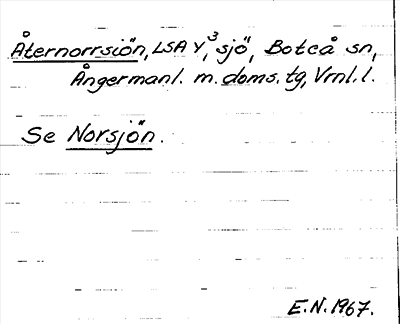 Åternorrsiön, LSA Y,³ sjö, Boteå sn,
Ångermanl. m. doms. tg, Vrnl. l.
Se Norsjön.
E.N. 1967.